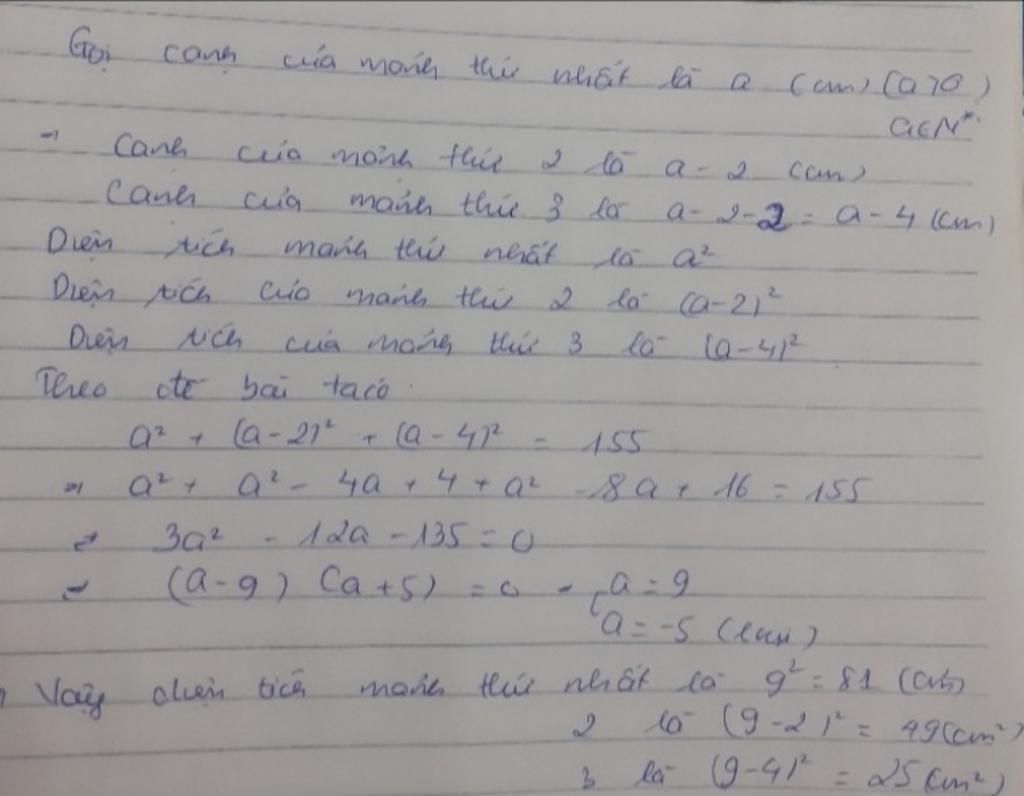 Gọi cạnh của mảnh thứ nhất là a (cm) (a>0)
a∈N*
⇒ Cạnh của mảnh thứ 2 là a - 2 (cm)
Cạnh của mảnh thứ 3 là a - 2 - 2 = a - 4 (cm)
Diện tích mảnh thứ nhất là a²
Diện tích của mảnh thứ 2 là (a-2)²
Diện tích của mảnh thứ 3 là (a-4)²
Theo đề bài ta có
a² + (a-2)² + (a-4)² = 155
⇒ a² + a² - 4a + 4 + a² - 8a + 16 = 155
⇒ 3a² - 12a - 135 = 0
⇒ (a-9) (a+5) = 0 ⇒ [a = 9
a = -5 (loại)
Vậy diện tích mảnh thứ nhất là 9² = 81 (cm²)
2 là (9-2)² = 49 (cm²)
3 là (9-4)² = 25 (cm²)